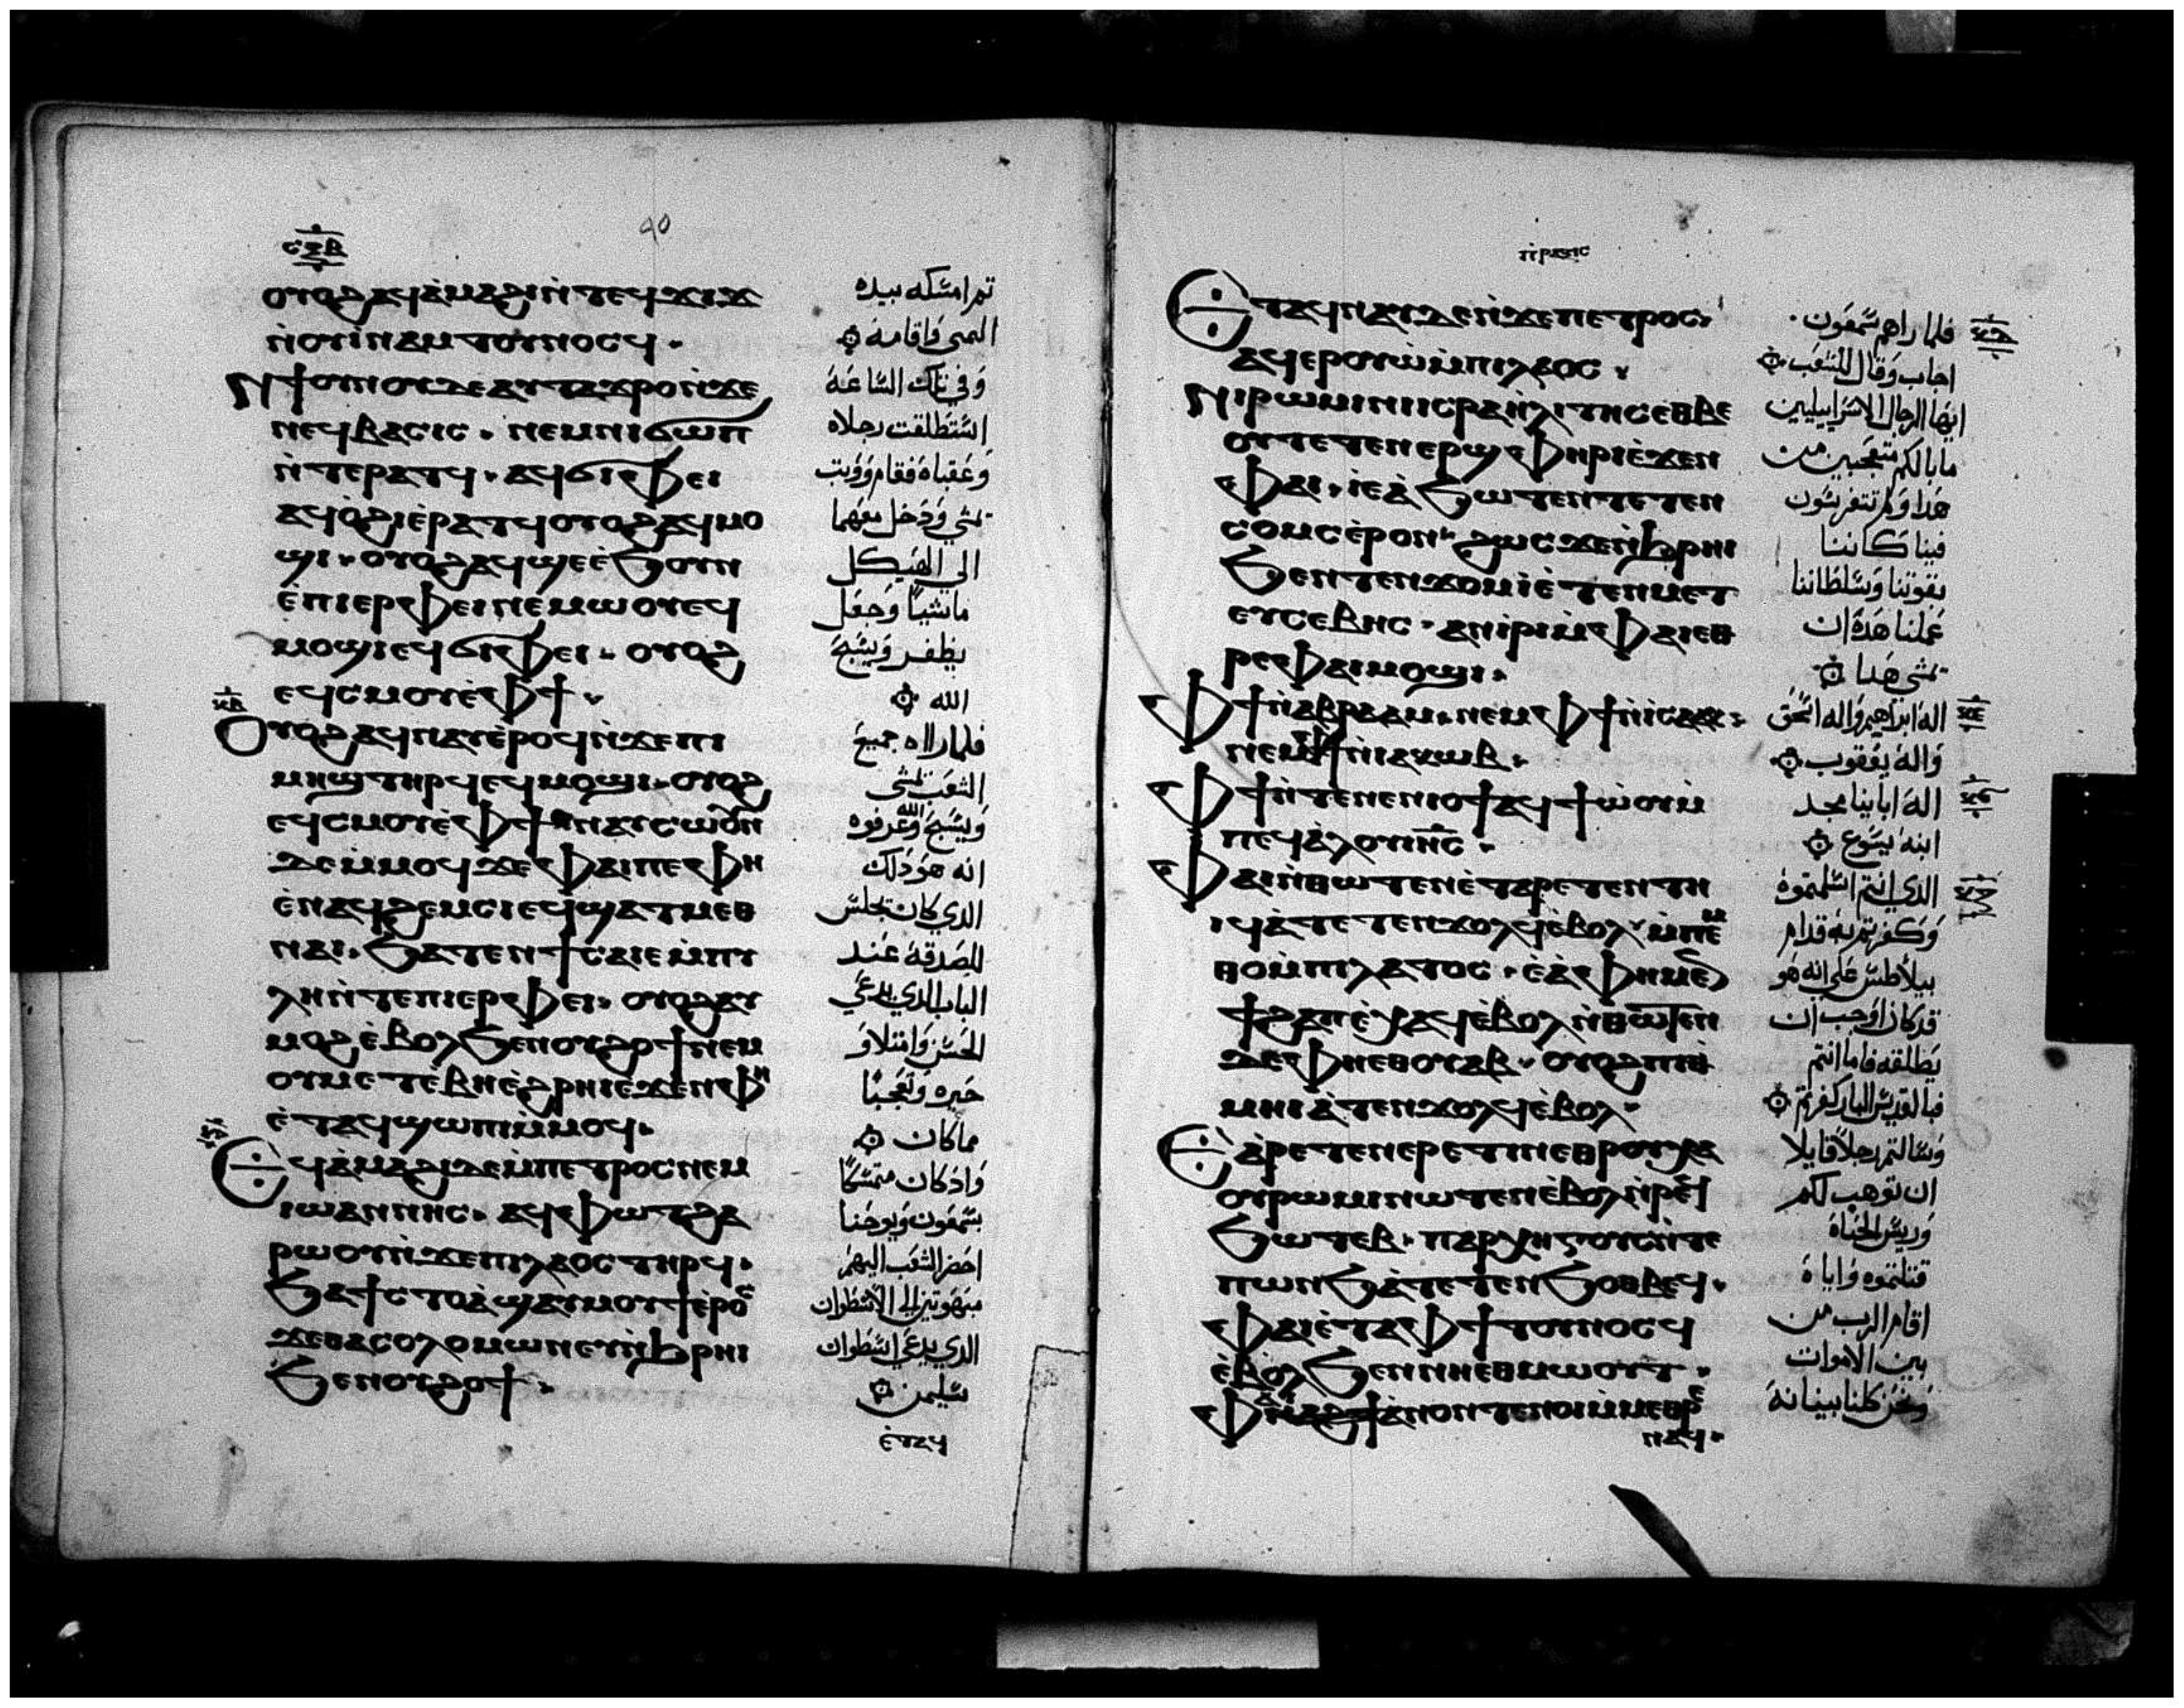 ⲥⲝⲃ
90
ⲟⲩⲟϩ ⲁϥⲁ̀ⲙⲁϩⲓ ⲛ̀ⲧⲉϥϫⲓϫ
ⲛ̀ⲟⲩⲓ̀ⲛⲁⲙ ⲧⲟⲩⲛⲟⲥϥ.
ⲛϯⲟⲩⲛⲟⲩ ⲇⲉ ⲁⲩⲧⲁϫⲣⲟ ⲛ̀ϫⲉ
ⲛⲉϥⲃⲁⲥⲓⲥ. ⲛⲉⲙ ⲛⲓϭⲱⲡ
ⲛ̀ⲧⲉ ⲣⲁⲧϥ. ⲁϥϭⲓⲫⲉⲓ
ⲁϥⲟ̀ϩⲓ ⲉ̀ⲣⲁⲧϥ ⲟⲩⲟϩ ⲁϥⲙⲟ
ϣⲓ. ⲟⲩⲟϩ ⲁϥϣⲉ ⲉ̀ϧⲟⲩⲛ
ⲉ̀ⲡⲓⲉⲣⲫⲉⲓ ⲛⲉⲙⲱⲟⲩ ⲉϥ
ⲙⲟϣⲓ ⲉϥϭⲓⲫⲉⲓ. ⲟⲩⲟϩ
ⲉϥⲥⲙⲟⲩ ⲉ̀ⲫϯ.
ⲟⲩⲟϩ ⲁϥⲛⲁⲩ ⲉ̀ⲣⲟϥ ⲛ̀ϫⲉ ⲡⲓ
ⲙⲏϣ ⲧⲏⲣϥ ⲉϥⲙⲟϣⲓ. ⲟⲩⲟϩ
ⲉϥⲥⲙⲟⲩ ⲉ̀ⲫϯ ⲛⲁⲩⲥⲱⲟⲩⲛ
ⲇⲉ ⲙ̀ⲙⲟϥ ϫⲉ ⲫⲁⲓ ⲡⲉ ⲫⲏ
ⲉ̀ⲛⲁϥϩⲉⲙⲥⲓ ⲉϥϣⲁⲧⲙⲉⲑ
ⲛⲁⲓ. ϧⲁⲧⲉⲛ ϯⲥⲁⲓⲉ ⲙ̀ⲡⲩ
ⲗⲏ ⲛ̀ⲧⲉ ⲡⲓⲉⲣⲫⲉⲓ. ⲟⲩⲟϩ ⲁⲩ
ⲙⲟϩ ⲉ̀ⲃⲟⲗ ϧⲉⲛ ⲟⲩϩⲟϯ ⲛⲉⲙ
ⲟⲩⲙⲉⲧⲉ̀ⲃⲏ ⲉ̀ϩⲣⲏⲓ ⲉ̀ϫⲉⲛ ⲫⲏ
ⲉ̀ⲧⲁϥϣⲱⲡⲓ ⲙ̀ⲙⲟϥ.
ⲉϥⲁ̀ⲙⲁϩⲓ ⲇⲉ ⲙ̀ⲡⲉⲧⲣⲟⲥ ⲛⲉⲙ
ⲓⲱⲁⲛⲛⲏⲥ. ⲁϥⲫⲱⲧ ϩⲁ
ⲣⲱⲟⲩ ⲛ̀ϫⲉ ⲡⲓⲗⲁⲟⲥ ⲧⲏⲣϥ.
ϧⲁ ϯⲥⲧⲟⲁ̀ ϣⲁⲩⲙⲟⲩϯ ⲉ̀ⲣⲟⲥ
ϫⲉ ⲑⲁ ⲥⲟⲗⲟⲙⲱⲛ ⲉⲩⲛ̀ϩⲣⲏⲓ
ϧⲉⲛ ⲟⲩϩⲟϯ.
ثم امسكه بيده
اليمنى واقامه
وفي تلك الساعة
استطلقت رجلاه
وعقباه فقام ووثب
يمشي ودخل معهما
الى الهيكل
ماشيا وجعل
يطفر ويسبح
الله
فلما راه جميع
الشعب يمشى
ويسبح الله عرفوه
انه هو ذلك
الذي كان يجلس
للصدقة عند
الباب الذي يدعي
الحسن وامتلاو
حيره وتعجبا
مما كان
واذ كان متمسكا
بشمعون ويوحنا
احضر الشعب اليهم
مبهوتين الى الاسطوان
الذي يدعي اسطوان
سليمن
ⲉ̀ⲧⲁϥ
ⲡⲣⲁⲝⲓⲥ
ⲉⲧⲁϥⲛⲁⲩ ⲇⲉ ⲛ̀ϫⲉ ⲡⲉⲧⲣⲟⲥ
ⲁϥⲉⲣⲟⲩⲱ̀ ⲙ̀ⲡⲓⲗⲁⲟⲥ.
ⲛⲓⲣⲱⲙⲓ ⲛⲓⲓⲥⲣⲁⲏ̀ⲗⲓⲧⲏⲥ ⲉⲑⲃⲉ
ⲟⲩ ⲧⲉⲧⲉⲛⲉⲣϣⲫⲏⲣⲓ ⲉ̀ϫⲉⲛ
ⲫⲁⲓ. ⲓⲉ ⲁ̀ϧⲱⲧⲉⲛ ⲧⲉⲧⲉⲛ
ⲥⲟⲙⲥ ⲉ̀ⲣⲟⲛ. ϩⲱⲥ ϫⲉ ⲛ̀ϩⲣⲏⲓ
ϧⲉⲛ ⲧⲉⲛϫⲟⲙ ⲓⲉ̀ ⲧⲉⲛⲙⲉⲧ
ⲉⲩⲥⲉⲃⲏⲥ. ⲁⲛⲓⲣⲓ ⲙ̀ⲫⲁⲓ ⲉⲑ
ⲣⲉ ⲫⲁⲓ ⲙⲟϣⲓ.
ⲫϯ ⲛ̀ⲁⲃⲣⲁⲁⲙ. ⲛⲉⲙ ⲫϯ ⲛ̀ⲓⲥⲁⲁⲕ.
ⲛⲉⲙ ⲫϯ ⲛ̀ⲓⲁⲕⲱⲃ.
ⲫϯ ⲛ̀ⲧⲉ ⲛⲉⲛⲓⲟϯ ⲁϥϯⲱ̀ⲟⲩ ⲙ̀
ⲡⲉϥⲁ̀ⲗⲟⲩ ⲓⲏ̅ⲥ̅.
ⲫⲁⲓ ⲛ̀ⲑⲱⲧⲉⲛ ⲉ̀ⲧⲁⲣⲉⲧⲉⲛⲧⲏ
ⲓϥ ⲁ̀ⲧⲉⲧⲉⲛϫⲟⲗϥ ⲉ̀ⲃⲟⲗ ⲙ̀ⲡⲉ
ⲑⲟ ⲙ̀ⲡⲓⲗⲁⲧⲟⲥ. ⲉ̀ⲁ̀ ⲫⲏ ⲙⲉⲛ
ϯϩⲁⲡ ⲉ̀ⲭⲁϥ ⲉ̀ⲃⲟⲗ ⲛ̀ⲑⲱⲧⲉⲛ
ⲇⲉ ⲫⲏ ⲉⲑⲟⲩⲁⲃ. ⲟⲩⲟϩ ⲡⲓⲑ
ⲙⲏⲓ ⲁ̀ⲧⲉⲛϫⲟⲗϥ ⲉ̀ⲃⲟⲗ.
ⲉⲁ̀ⲣⲉⲧⲉⲛⲉⲣⲉⲧⲓⲛ ⲉⲑⲣⲟⲩⲭⲁ
ⲟⲩⲣⲱⲙⲓ ⲛⲱⲧⲉⲛ ⲉ̀ⲃⲟⲗ ⲛ̀ⲣⲉϥ
ϧⲱⲧⲉⲃ. ⲡⲁⲣⲭⲏⲅⲟⲥ ⲛ̀ⲧⲉ
ⲡⲱⲛϧ ⲁ̀ⲧⲉⲧⲉⲛϧⲟⲑⲃⲉϥ.
ⲫⲁⲓ ⲉ̀ⲧⲁ ⲫϯ ⲧⲟⲩⲛⲟⲥϥ
ⲉ̀ⲃⲟⲗ ϧⲉⲛ ⲛⲏⲉⲑⲙⲱⲟⲩⲧ.
ⲁ̀ⲛⲟⲛ ⲧⲉⲛⲟⲓ ⲙ̀ⲙⲉⲑⲣⲉ
ⲛⲁϥ.
فلما راهم شمعون
اجاب وقال للشعب
ايها الرجال الاسراييليين
ما بالكم متعجبين من
هذا ولم تتفرسون
فينا كاننا
بقوتنا وسلطاننا
عملنا هذه ان
يمشى هذا
اله ابراهيم واله اسحق
واله يعقوب
اله ابايينا مجد
ابنه يسوع
الذي انتم اسلمتوه
وكفرتم به قدام
بيلاطس على انه هو
قد كان اوجب ان
يطلقه فاما انتم
فبالقديس البار كفرتم
وسالتم رجلا قاتلا
ان توهب لكم
وريس الحياة
قتلتموه واياه
اقام الرب من
بين الاموات
ونحن كلنا بيناته